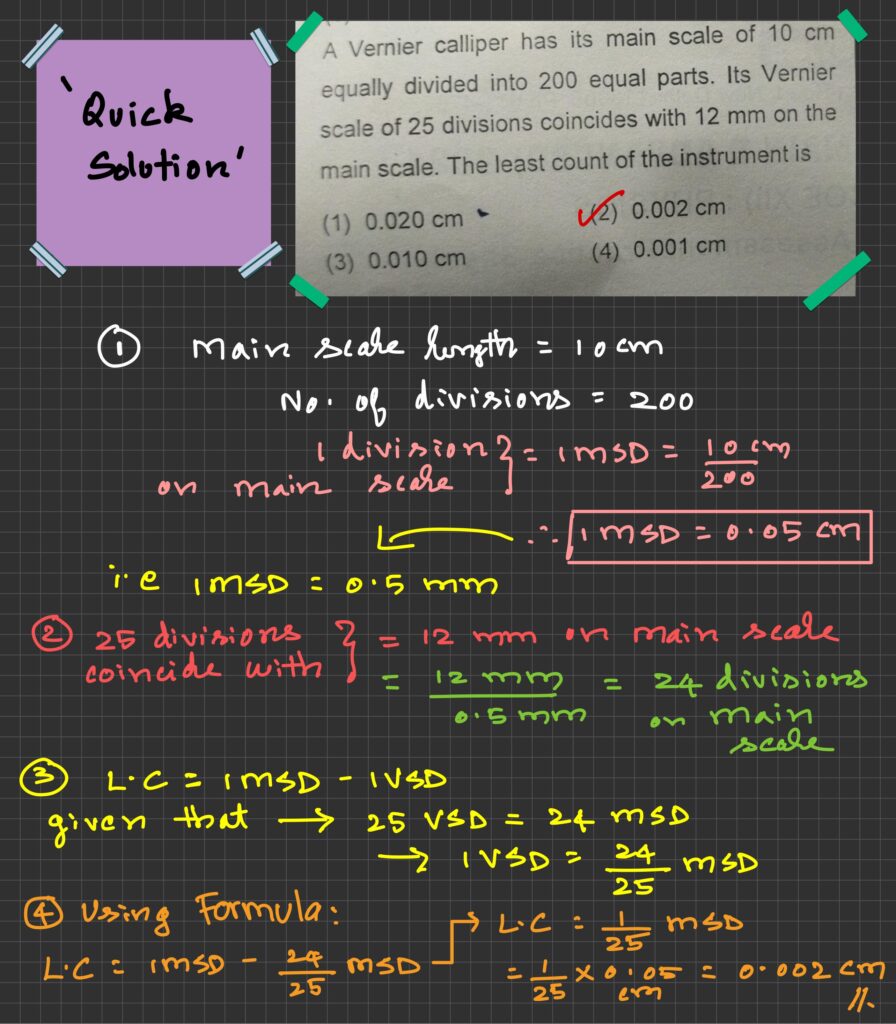 'Quick
Solution'
A Vernier calliper has its main scale of 10 cm
equally divided into 200 equal parts. Its Vernier
scale of 25 divisions coincides with 12 mm on the
main scale. The least count of the instrument is
(1) 0.020 cm (2) 0.002 cm
(3) 0.010 cm (4) 0.001 cm
① Main scale length = 10 cm
No. of divisions = 200
1 division } = 1 MSD = 10 cm / 200
on main scale
∴ 1 MSD = 0.05 cm
i.e 1 MSD = 0.5 mm
② 25 divisions } = 12 mm on main scale
coincide with = 12 mm / 0.5 mm = 24 divisions
on main
scale
③ L.C = 1 MSD - 1 VSD
given that → 25 VSD = 24 MSD
→ 1 VSD = 24/25 MSD
④ Using Formula:
L.C = 1 MSD - 24/25 MSD → L.C = 1/25 MSD
= 1/25 × 0.05 cm = 0.002 cm //.